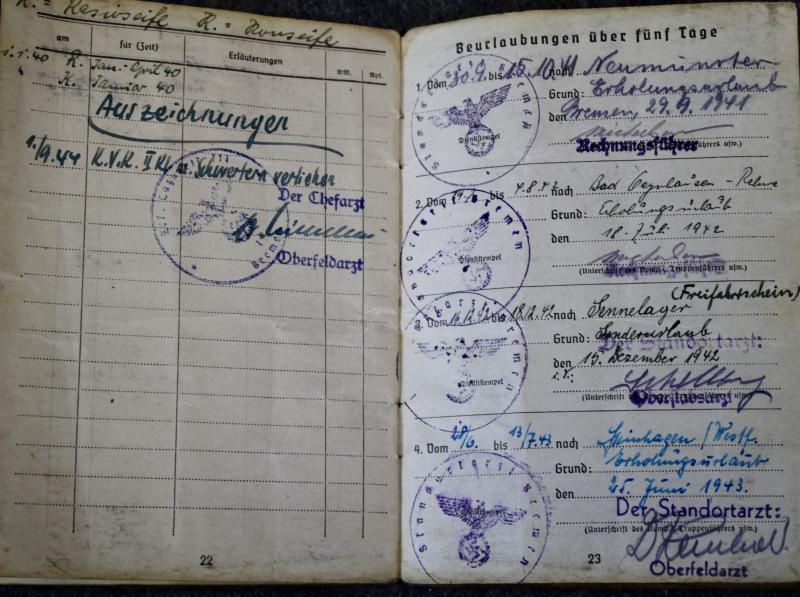 K. = Rasierseife K. = Kernseife
am für (Zeit) Erläuterungen RM. Rpf.
1.1.40 R. Jan.-April 40
" K. Januar 40
Auszeichnungen
1./9.44 K.V.K. II Kl. m. Schwertern verliehen
Der Chefarzt
Oberfeldarzt
Bremen
22
Beurlaubungen über fünf Tage
1. Vom 30.9. bis 15.10.41 nach Neumünster
Grund: Erholungsurlaub
den Bremen, 29.9.1941
Dienststempel
Rechnungsführer
Standortarzt Bremen
2. Vom bis 4.8.42 nach Bad Oeynhausen - Rehme
Grund: Erholungsurlaub
den 18. Juli 1942
Dienststempel
(Unterschrift des Komp.- Truppenführers usw.)
Standortarzt Bremen
(Freifahrtschein)
3. Vom 16.12.42 bis 18.12.42 nach Sennelager
Grund: Sonderurlaub
Der Standortarzt:
den 15. Dezember 1942
Dienststempel
i.V.
Oberstabsarzt
4. Vom 28/6. bis 13/7.43 nach Steinhagen / Westf.
Grund: Erholungsurlaub
den 25. Juni 1943.
Der Standortarzt:
(Unterschrift des Komp.- Truppenführers usw.)
Standortarzt Bremen
Oberfeldarzt
23